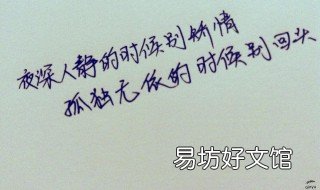 夜深人静的时候别矫情
孤独无依的时候别回头
易坊好文馆